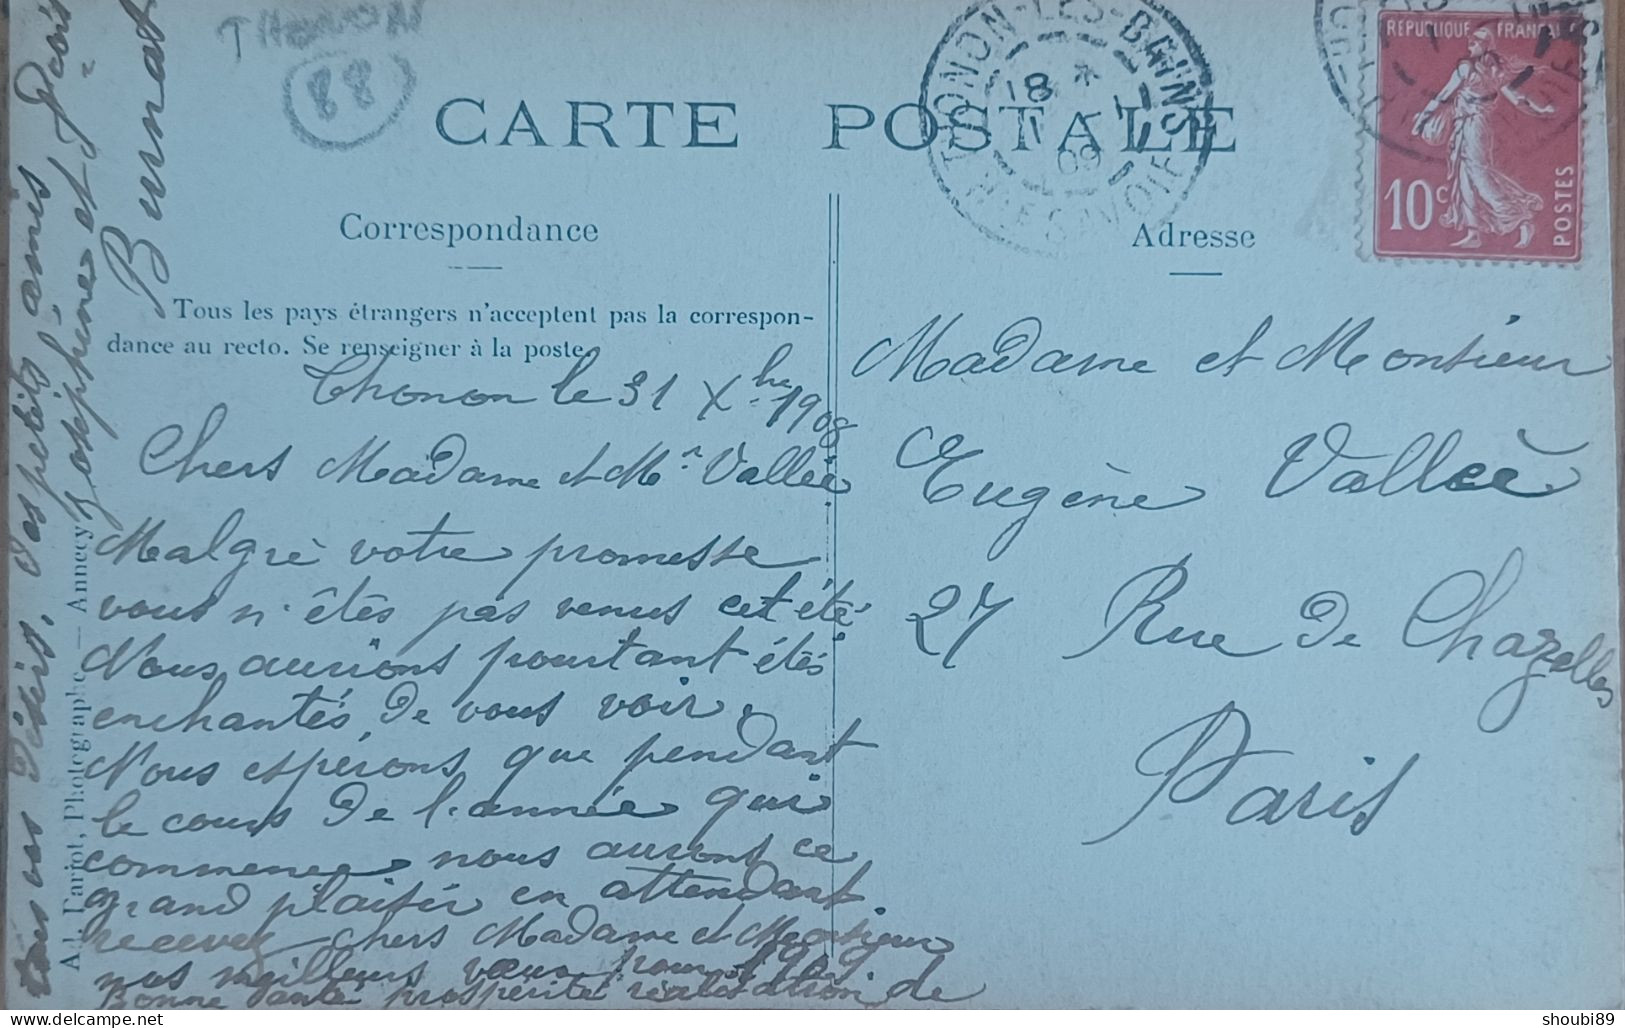 THONON
88
CARTE POSTALE
THONON-LES-BAINS
18 *
1 - 1
09
Hte SAVOIE
REPUBLIQUE FRANÇAISE
10c
POSTES
Correspondance
Adresse
Tous les pays étrangers n'acceptent pas la correspon-
dance au recto. Se renseigner à la poste
Thonon le 31 Xbre 1908
Chers Madame et Mr Vallée
Malgré votre promesse
vous n'êtes pas venus cet été
Nous aurions pourtant étés
enchantés de vous voir.
Nous espérons que pendant
le cours de l'année qui
commence nous aurons ce
grand plaisir en attendant
recevez chers Madame et Monsieur
nos meilleurs vœux pour 1909.
Bonne santé prospérité réalisation de
tous vos désirs. Vos petits amies
Joséphine et
Burnat
Madame et Monsieur
Eugène Vallée
27 Rue de Chazelles
Paris
Ad. Pariot, Photographe — Annecy
shoubi89